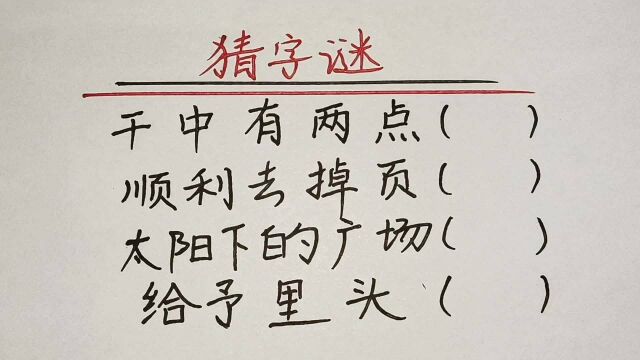 猜字谜
干中有两点( )
顺利去掉页( )
太阳下的广场( )
给予里头( )